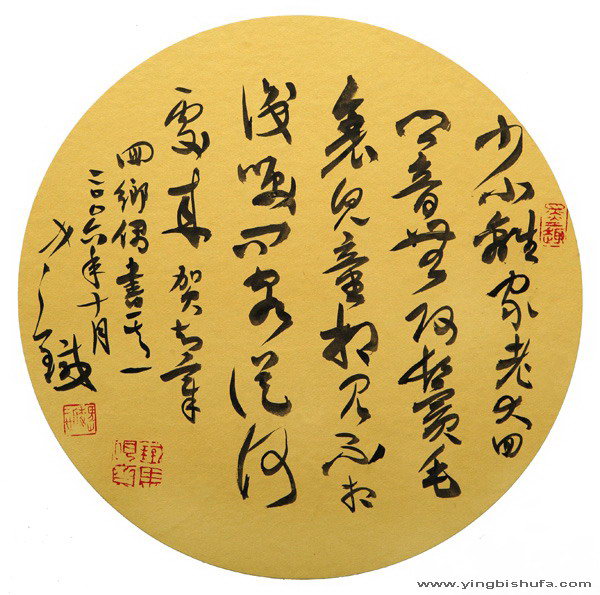 少小離家老大回
鄉音無改鬢毛
衰兒童相見不相
識笑问客從何
處来 贺知章
回鄉偶書其一
二〇〇六年十月
www.yingbishufa.com